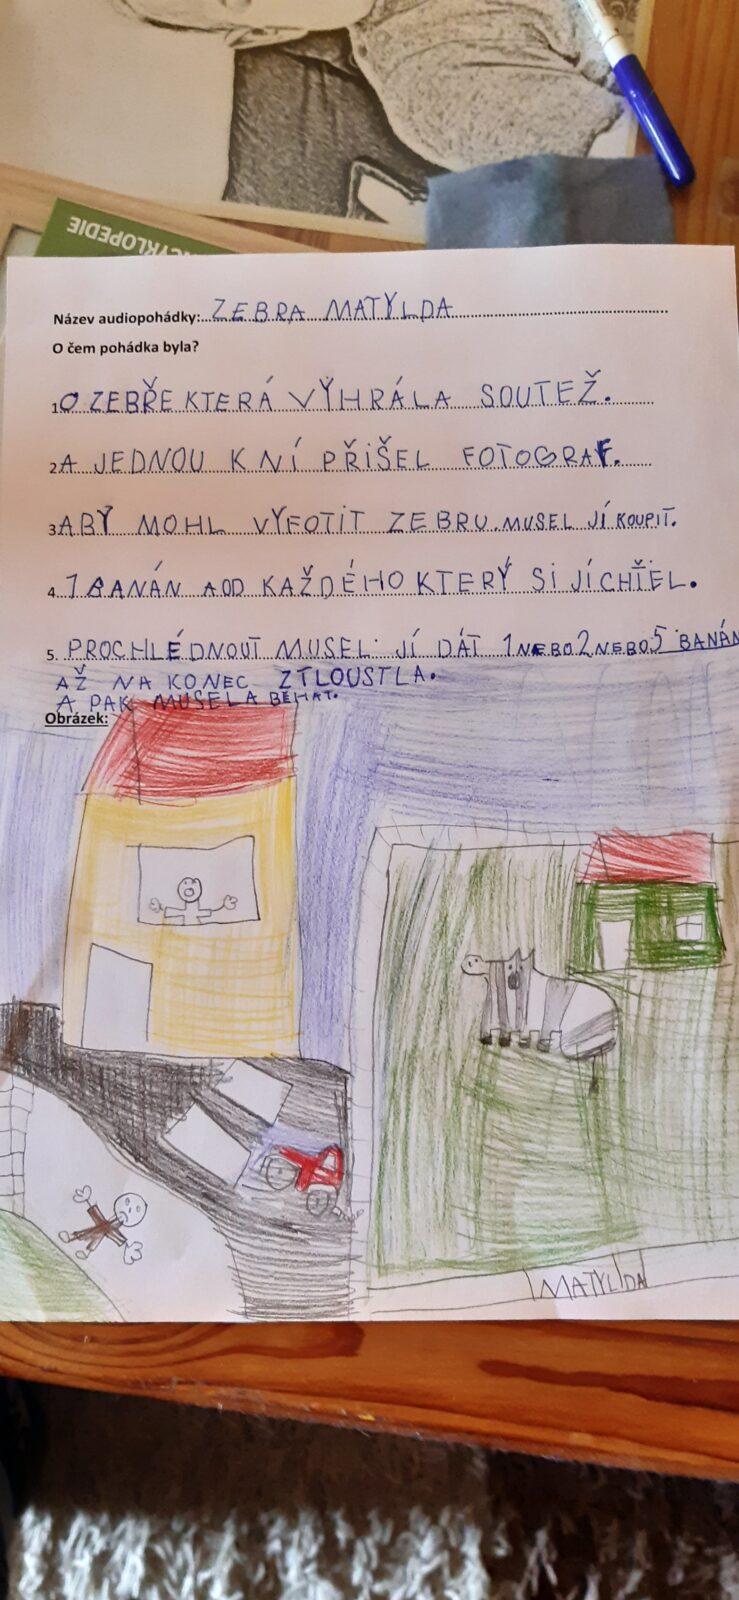 CYKLOPEDIE
Název audiopohádky: ZEBRA MATYLDA
O čem pohádka byla?
1 O ZEBŘE KTERÁ VYHRÁLA SOUTEŽ.
2 A JEDNOU K NÍ PŘIŠEL FOTOGRAF.
3 ABY MOHL VYFOTIT ZEBRU. MUSEL JÍ KOUPIT.
4. 1 BANÁN A OD KAŽDÉHO KTERÝ SI JÍ CHTĚL.
5. PROCHLÉDNOUT MUSEL JÍ DÁT 1 NEBO 2 NEBO 5 BANÁN
AŽ NA KONEC ZTLOUSTLA.
A PAK MUSELA BĚHAT.
Obrázek:
MATYLDA